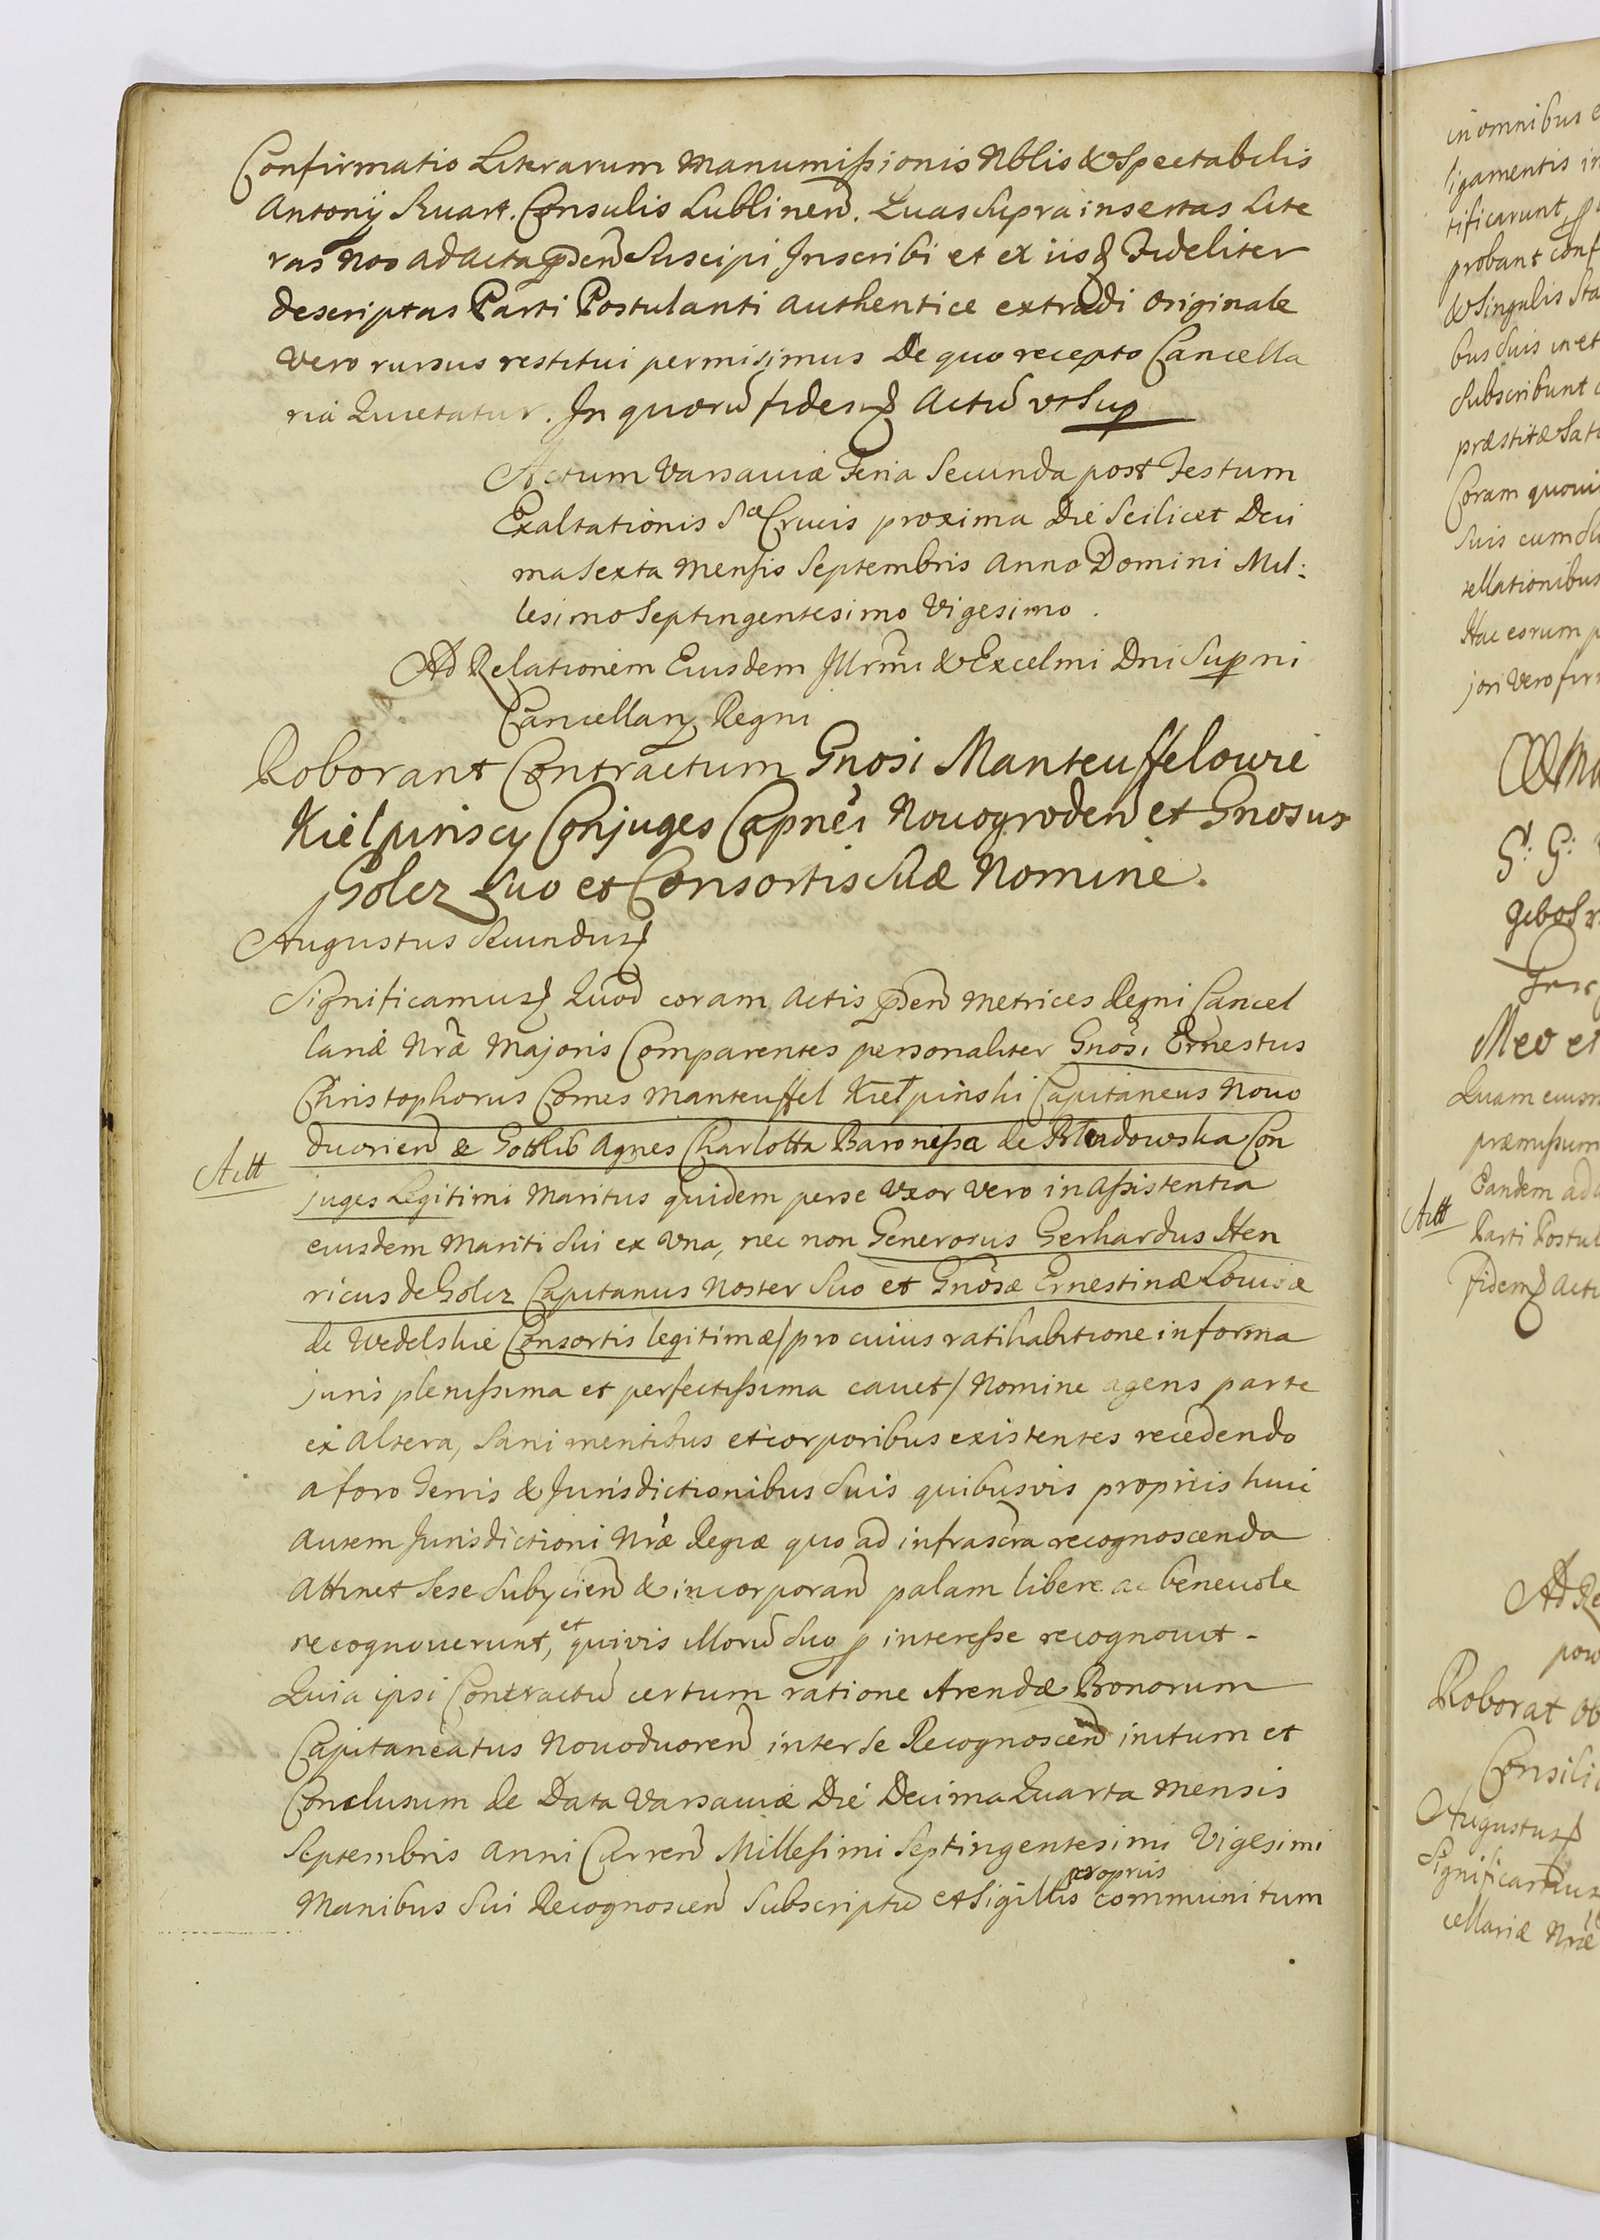 Confirmatio Literarum Manumissionis Nblis & Spectabilis
Antonij Ruart. Consulis Lublinen. Quas supra insertas Lite
ras nos ad acta pnsen Suscipi Inscribi et ex iisq Fideliter
descriptas Parti Postulanti authentice extradi originale
vero rursus restitui permisimus De quo recepto Cancella
ria Quietatur. In quorũ fidem Actũ ut Sup
Actum Varsaviæ Feria Secunda post Festum
Exaltationis Stæ Crucis proxima Die Scilicet Deci
ma Sexta Mensis Septembris Anno Domini Mil:
lesimo Septingentesimo Vigesimo.
Ad Relationem Eiusdem Illrmi & Excelmi Dni Suprni
Cancellarij Regni
Roborant Contractum Gnosi Manteuffelowie
Kielpinscy Conjuges Capnei Novogroden et Gnosus
Golcz Suo et Consortis Suæ Nomine.
Augustus Secundus
Significamus Quod coram Actis pnsen Metrices Regni Cancel
lariæ Nræ Majoris Comparentes personaliter Gnosi Ernestus
Christophorus Comes Manteuffel Kiełpinski Capitaneus Novo
dvorien & Gottlib Agnes Charlotta Baronissa de Bludowska Con
Actt
juges Legitimi Maritus quidem per se Uxor vero in Assistentia
eiusdem Mariti Sui ex Una, nec non Generosus Gerhardus Hen
ricus de Golcz Capitanus Noster Suo et Gnosæ Ernestinæ Louisæ
de Wedelskie Consortis legitimæ / pro cuius ratihabitione in forma
juris plenissima et perfectissima cavet / Nomine agens parte
ex Altera, Sani mentibus et corporibus existentes recedendo
a foro Terris & Jurisdictionibus Suis quibusvis propriis huic
autem Jurisdictioni Nræ Regiæ quo ad infrascra recognoscenda
Attinet Sese Subycien & incorporan palam libere ac benevole
recognoverunt, et quivis illorũ Suo p interesse recognovit -
Quia ipsi Contractũ certum ratione Arendæ Bonorum
Capitaneatus Novodvoren inter Se Recognoscen initum et
Conclusum de Data Varsaviæ Die Decima Quarta Mensis
Septembris Anni Curren Millesimi Septingentesimi Vigesimi
propriis
Manibus Sui Recognoscen Subscriptũ et Sigillis communitum
in omnibus
ligamentis
tificarunt
probant
& Singulis
bus Suis in et
Subscribunt
præstitæ
Coram quovi
Suis cum
cellationibus
Hac eorum
jori vero
G: G:
Meo et
Quam
præmissum
Eandem
Actt
Parti Postul
fidem Actũ
Ad Re
Roborat Ob
Consili
Augustus
Significamus
cellariæ Nræ